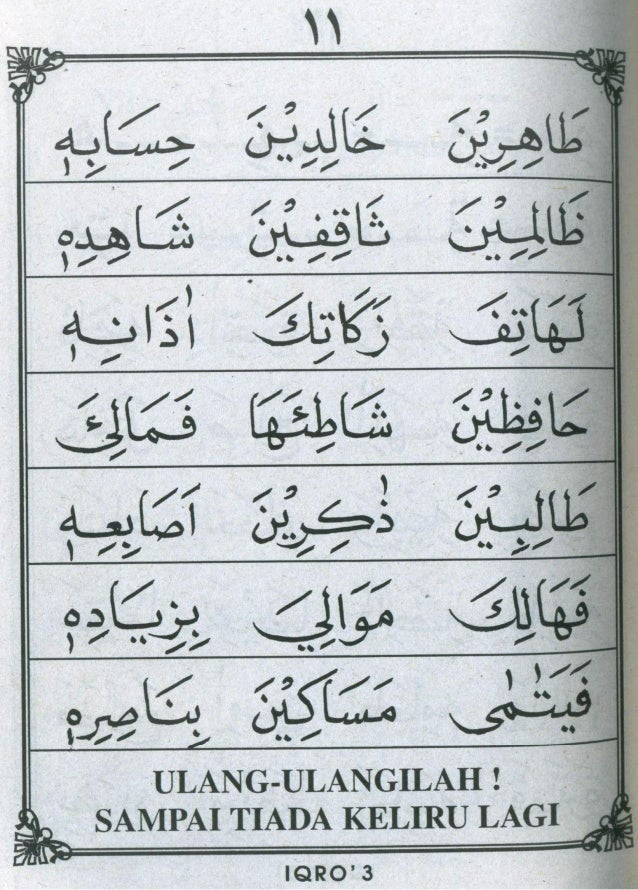 ١١
طَاهِرِيْنَ خَالِدِيْنَ حِسَابِهٖ
ظَالِمِيْنَ ثَاقِفِيْنَ شَاهِدِهٖ
لَهَاتِفَ زَكَاتِكَ اٰذَانِهٖ
حَافِظِيْنَ شَاطِئَهَا فَمَالِئَ
طَالِبِيْنَ ذٰكِرِيْنَ اَصَابِعِهٖ
فَهَالِكَ مَوَالِيَ بِزِيَادِهٖ
فَيَتٰمٰى مَسَاكِيْنَ بِنَاصِرِهٖ
ULANG-ULANGILAH !
SAMPAI TIADA KELIRU LAGI
IQRO' 3